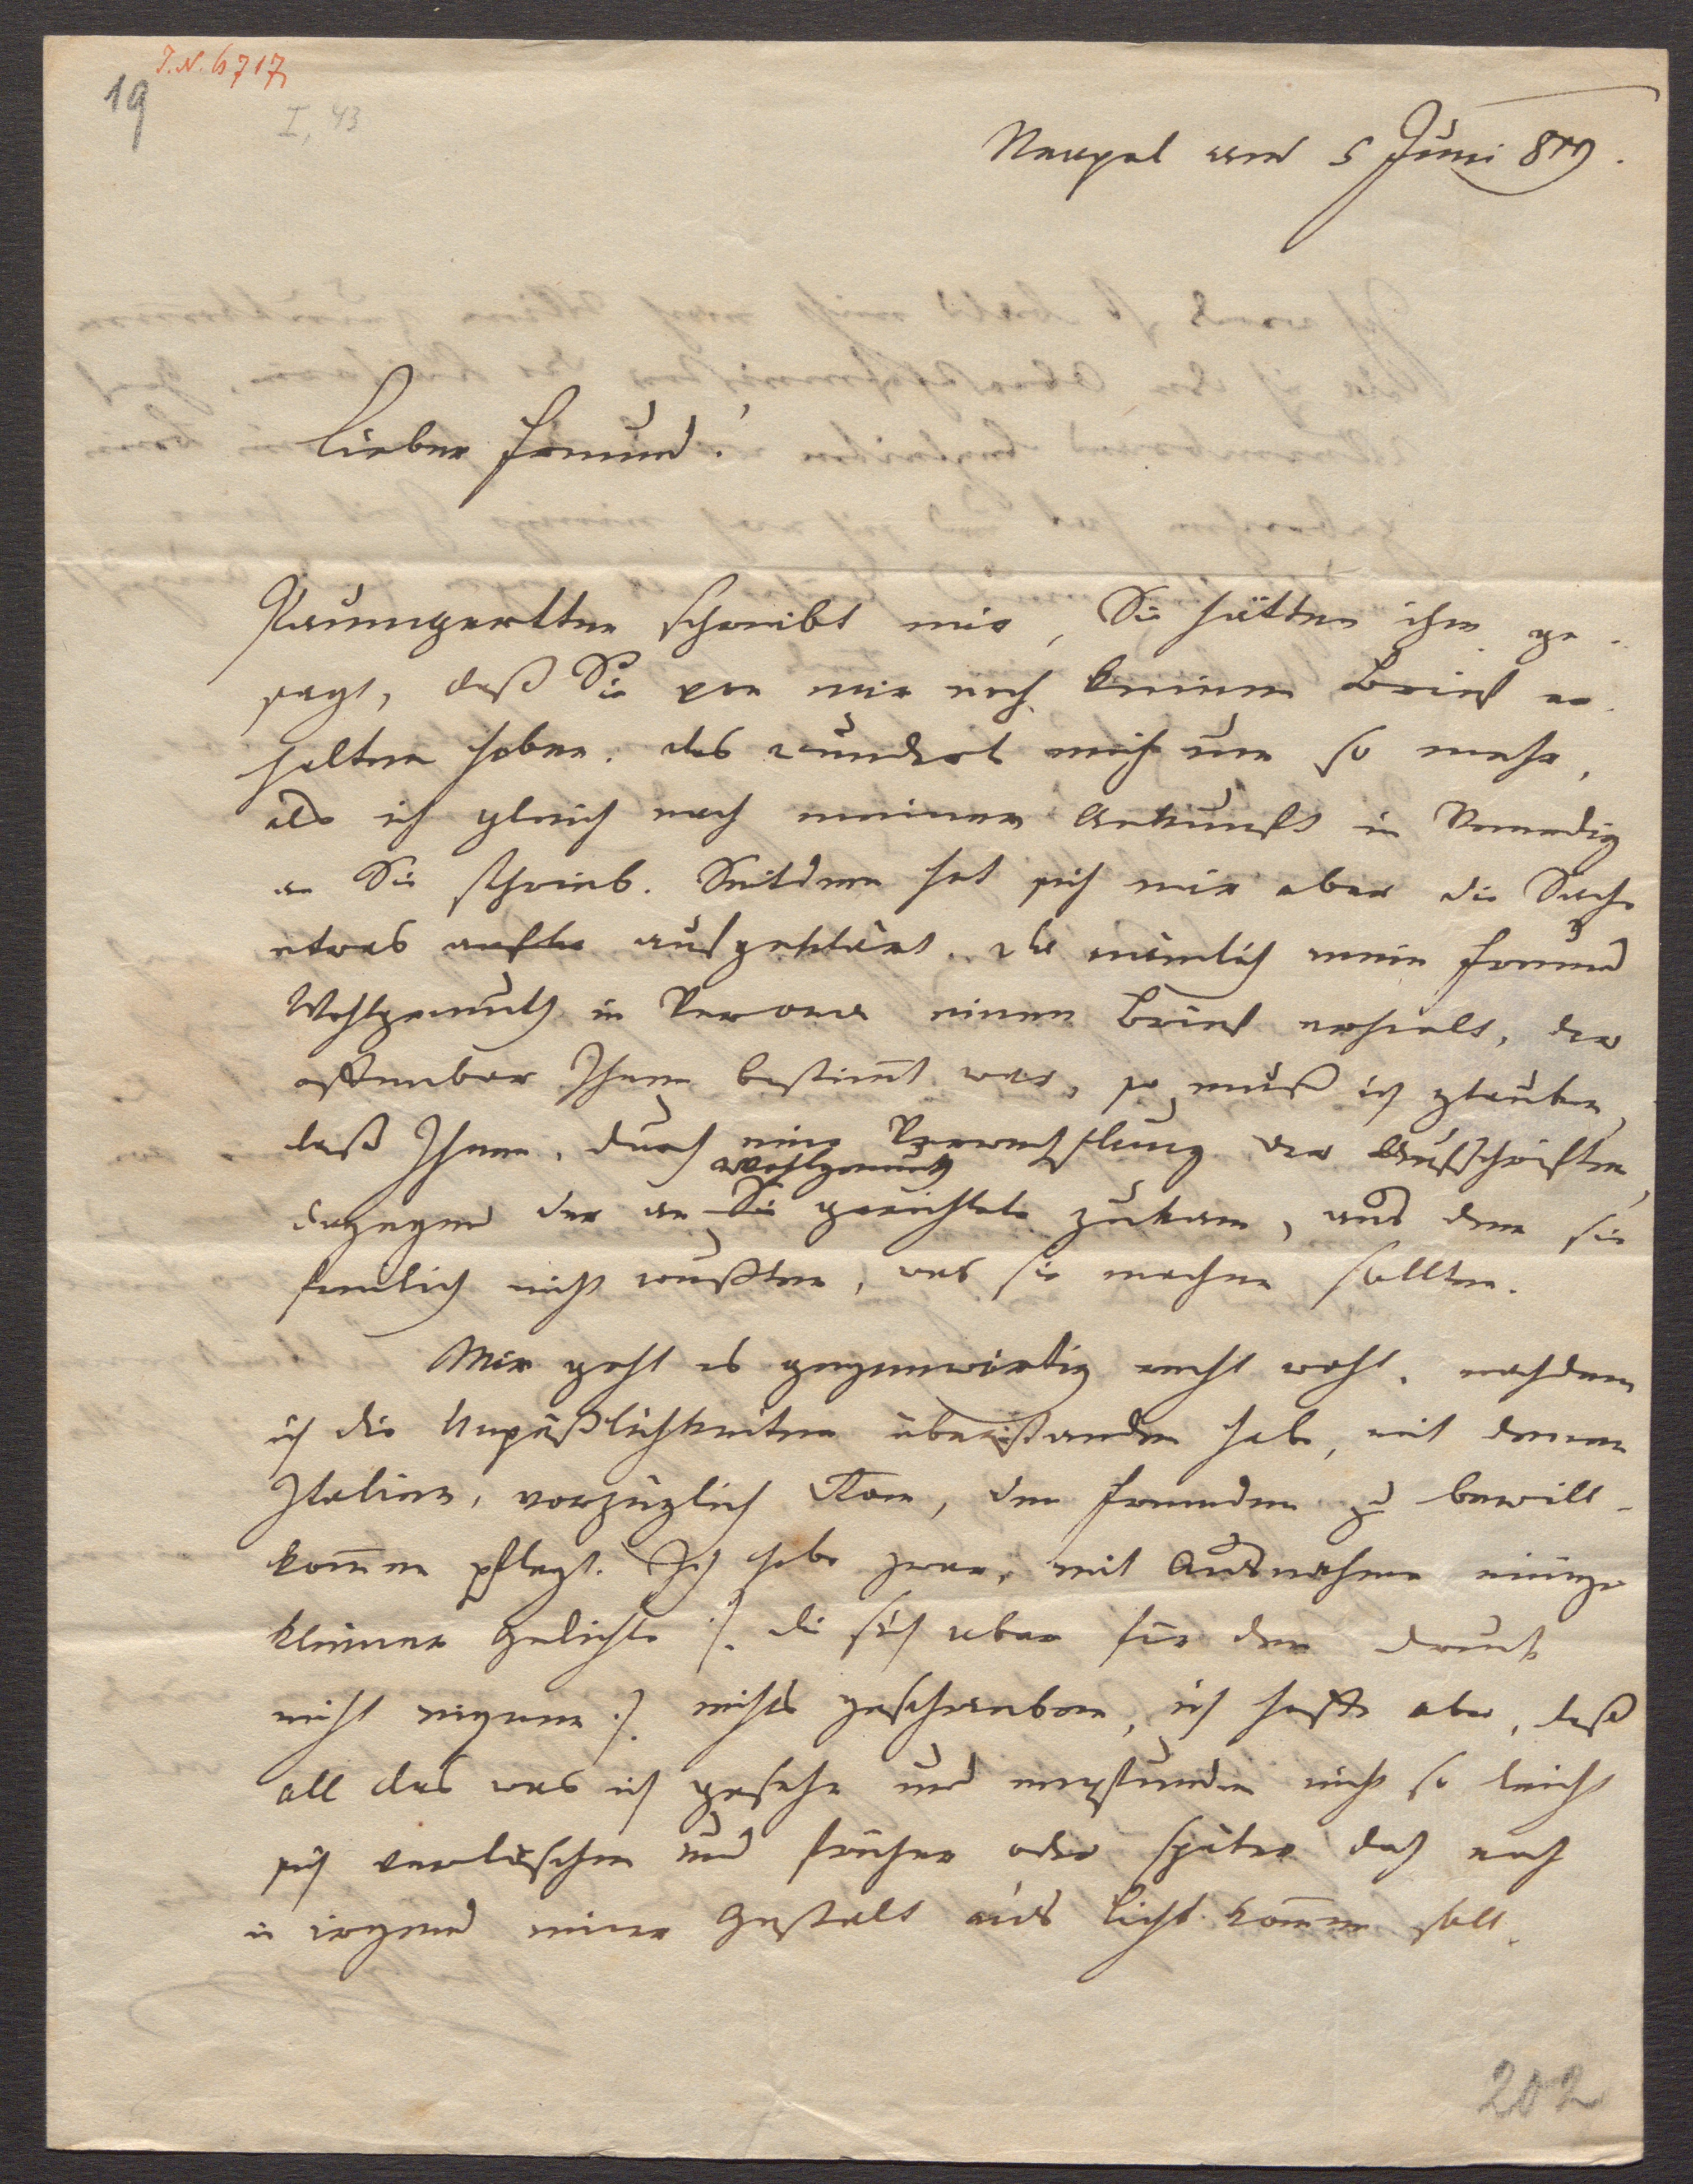 J.N. 6717
19
I, 43
Neapel am 5 Juni 819.
Lieber Freund!
Paumgartten schreibt mir, Sie hätten ihm ge-
sagt, daß Sie von mir noch keinen Brief er-
halten haben. das wundert mich um so mehr,
als ich gleich nach meiner Ankunft in Venedig
an Sie schrieb. Seitdem hat sich mir aber die Sache
etwas aufgeklärt. da nämlich mein Freund
Wohlgemuth in Verona einen Brief erhielt, der
offenbar Ihnen bestimmt war, so muß ich glauben,
daß Ihnen, durch eine Verwechslung der Aufschriften,
Wohlgemuth
dagegen der an Sie gerichtete zukam, aus dem sie
freilich nicht wußten, was sie machen sollten.
Mir geht es gegenwärtig recht wohl, nachdem
ich die Unpäßlichkeiten überstanden habe, mit denen
Italien, vorzüglich Rom, den Fremden zu bewill-
kommen pflegt. Ich habe zwar, mit Ausnahme einiger
kleiner Gedichte /: die sich aber für den Druck
nicht eignen :/ nichts geschrieben, ich hoffe aber, daß
all das was ich gesehn und empfunden nicht so leicht
sich verlöschen und früher oder später doch noch
in irgend einer Gestalt ans Licht kommen soll.
202